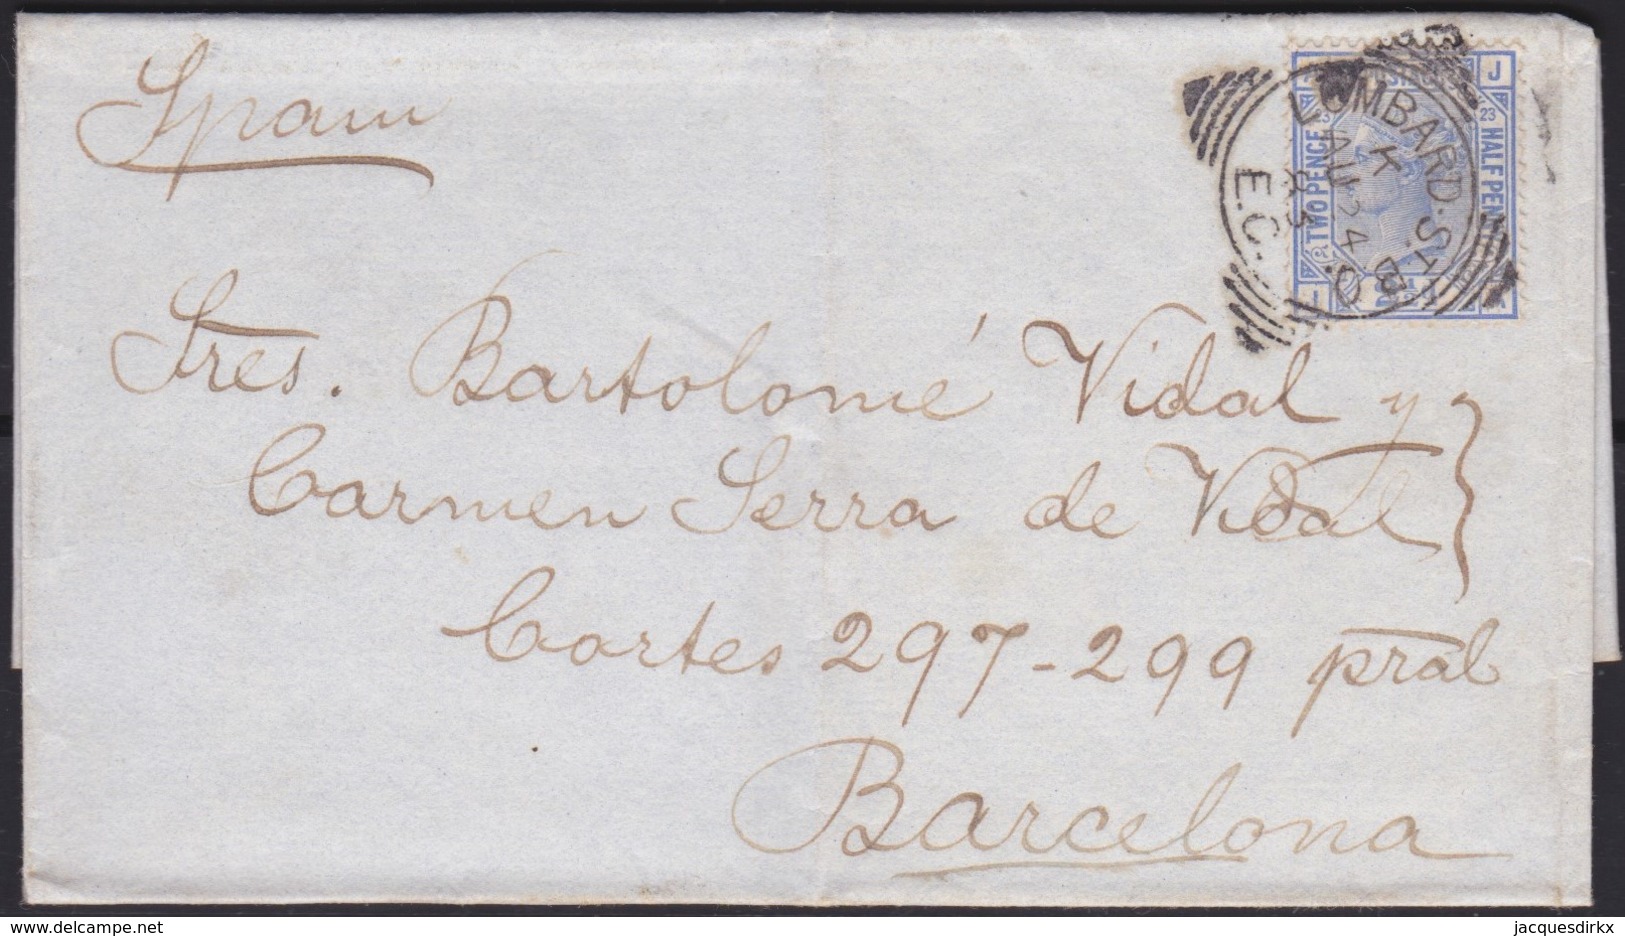 Spain
LOMBARD.ST.B.O.
K
AU 24
83
E.C.
POSTAGE
J
23
23
TWO PENCE
HALF PENNY
J
Sres. Bartolomé Vidal y
Carmen Serra de Vidal
Cortes 297-299 pral
Barcelona
jacquesdirkx